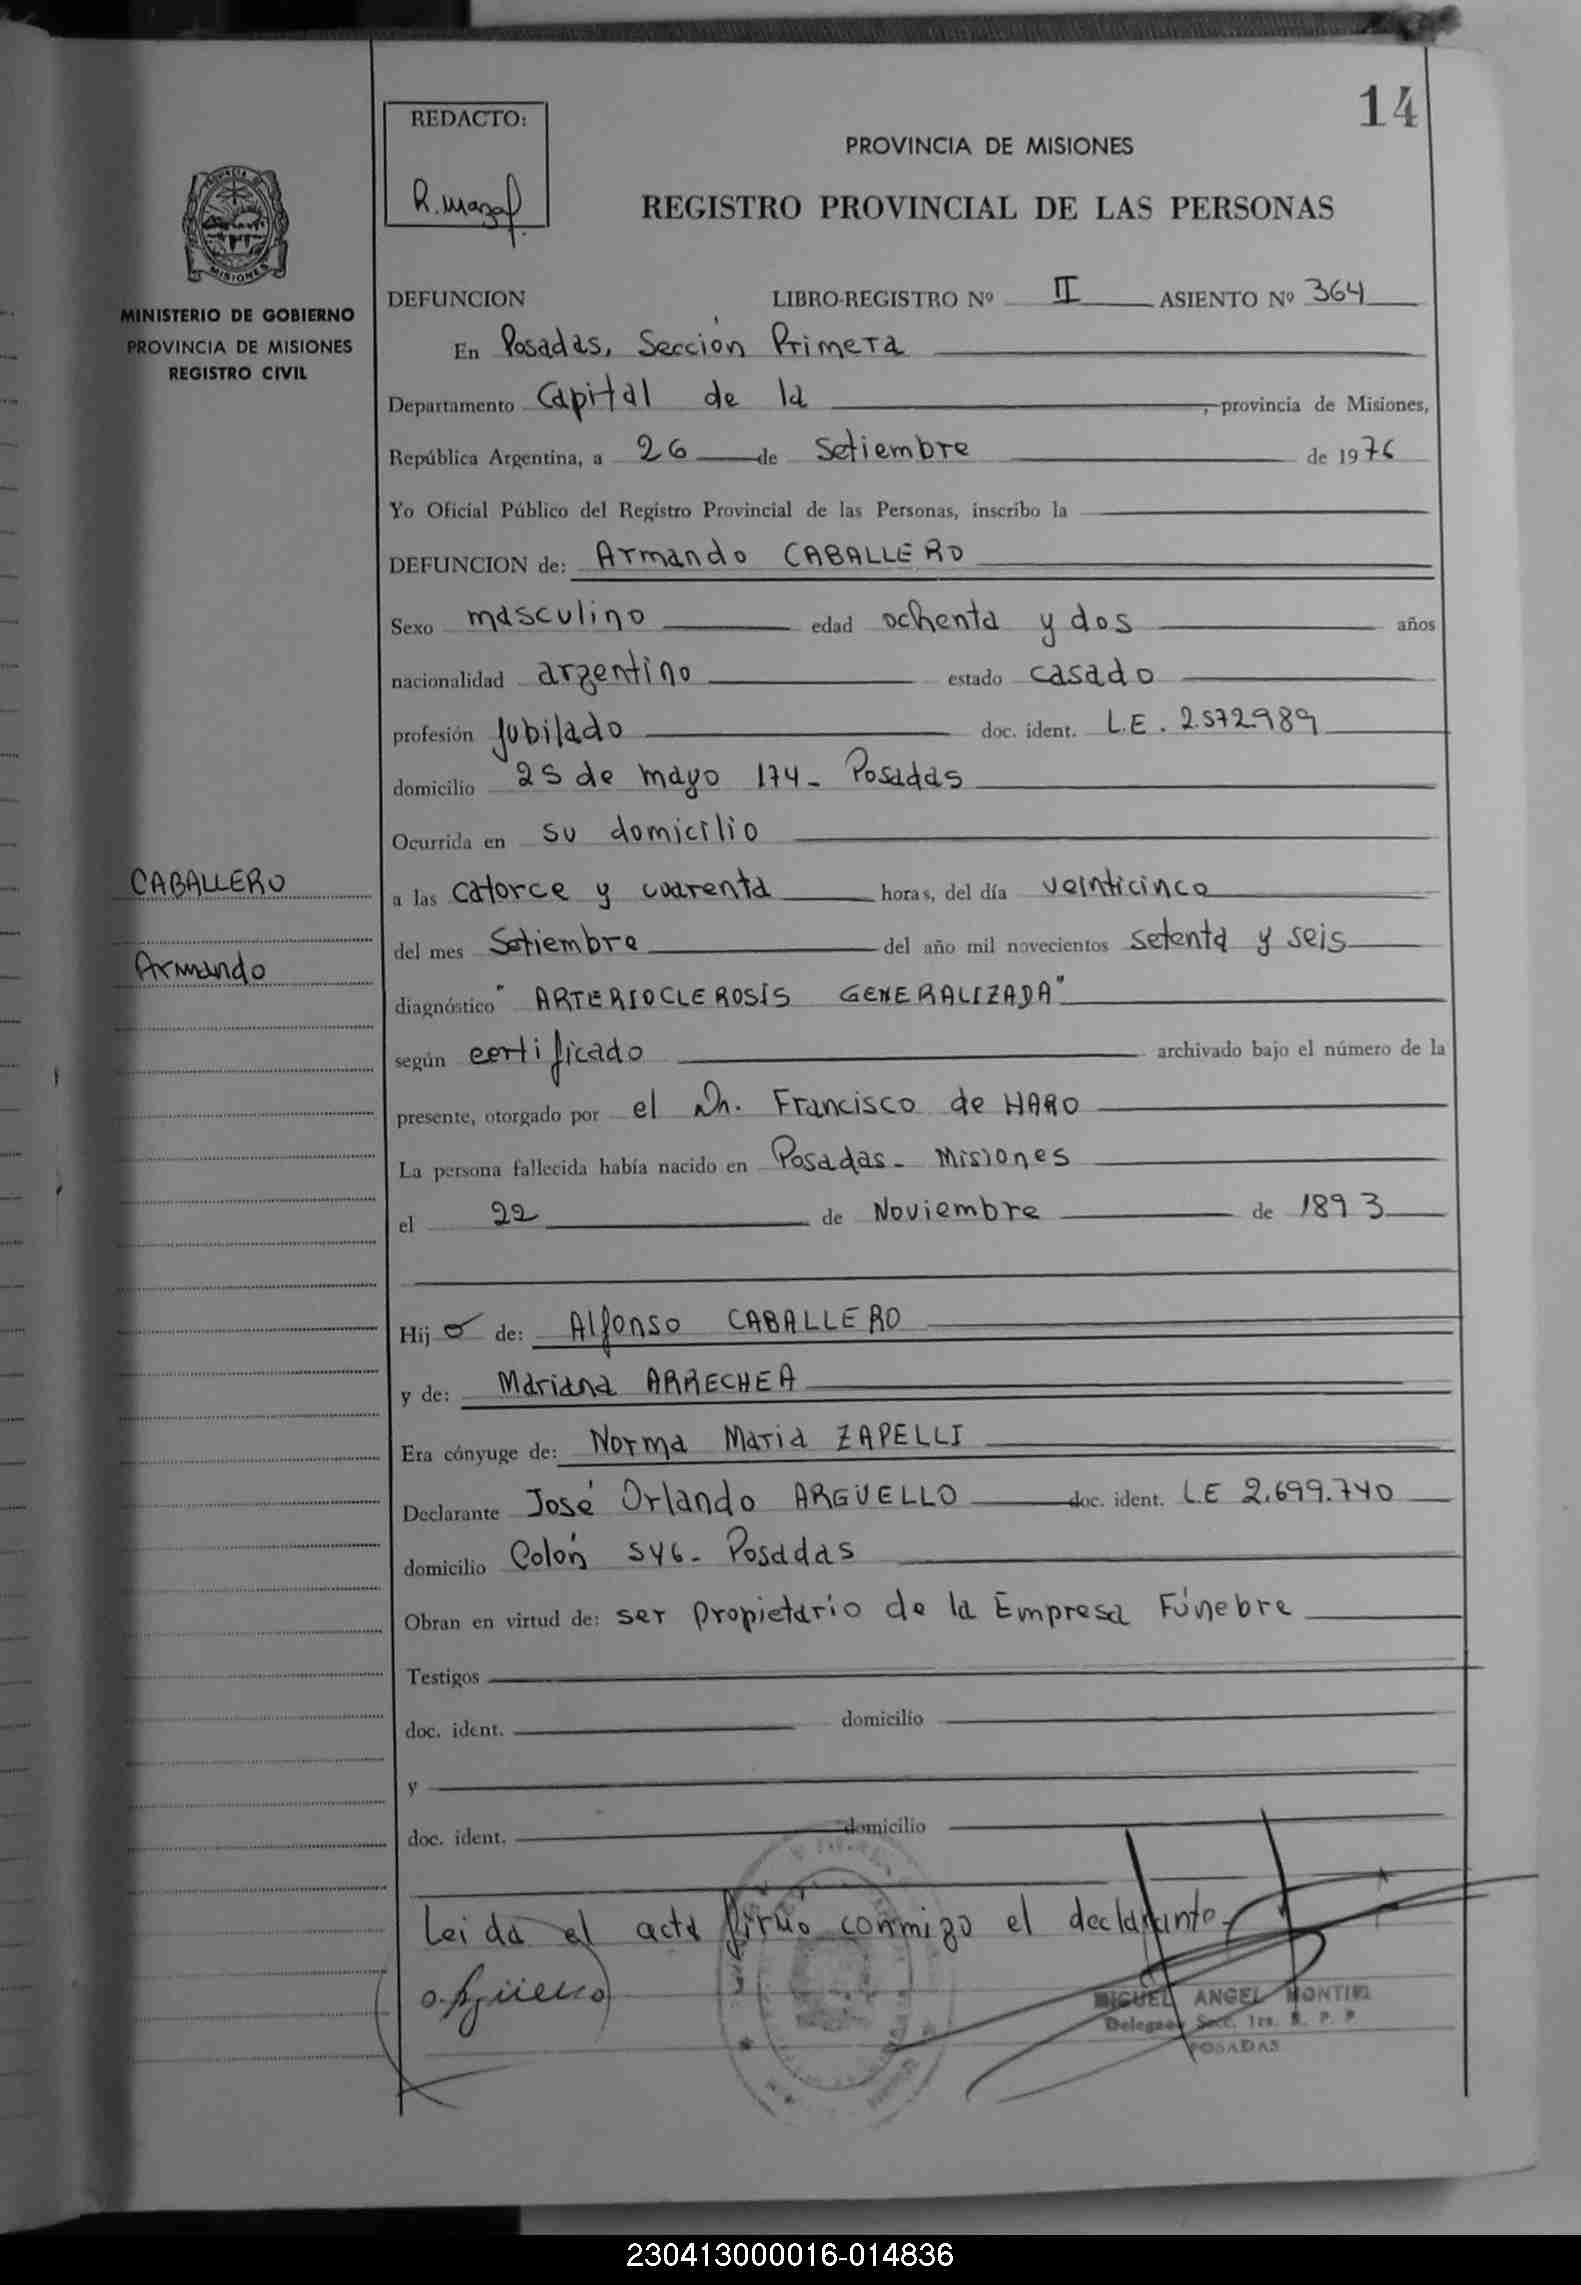 14
REDACTO:
PROVINCIA DE MISIONES
REGISTRO PROVINCIAL DE LAS PERSONAS
MISIONES
MINISTERIO DE GOBIERNO
PROVINCIA DE MISIONES
REGISTRO CIVIL
DEFUNCION LIBRO-REGISTRO Nº II ASIENTO Nº 364
En Posadas, Sección Primera
Departamento Capital de la , provincia de Misiones,
República Argentina, a 26 de Setiembre de 1976
Yo Oficial Público del Registro Provincial de las Personas, inscribo la
DEFUNCION de: Armando CABALLERO
Sexo masculino edad ochenta y dos años
nacionalidad argentino estado casado
profesión jubilado doc. ident. L.E. 2.572.989
domicilio 25 de mayo 174- Posadas
Ocurrida en su domicilio
CABALLERO
Armando
a las catorce y cuarenta horas, del día veinticinco
del mes Setiembre del año mil novecientos setenta y seis
diagnóstico "ARTERIOCLEROSIS GENERALIZADA"
según certificado archivado bajo el número de la
presente, otorgado por el Dr. Francisco de HARO
La persona fallecida había nacido en Posadas- Misiones
el 22 de Noviembre de 1893
Hijo de: Alfonso CABALLERO
y de: Mariana ARRECHEA
Era cónyuge de: Norma Maria ZAPELLI
Declarante José Orlando ARGÜELLO doc. ident. L.E 2.699.740
domicilio Colón 546- Posadas
Obran en virtud de: ser propietario de la Empresa Fúnebre
Testigos
doc. ident. domicilio
y
doc. ident. domicilio
Leida el acta firmó conmigo el declarante-
MIGUEL ANGEL MONTIEL
Delegado Secc. 1ra. R. P. P.
POSADAS
230413000016-014836